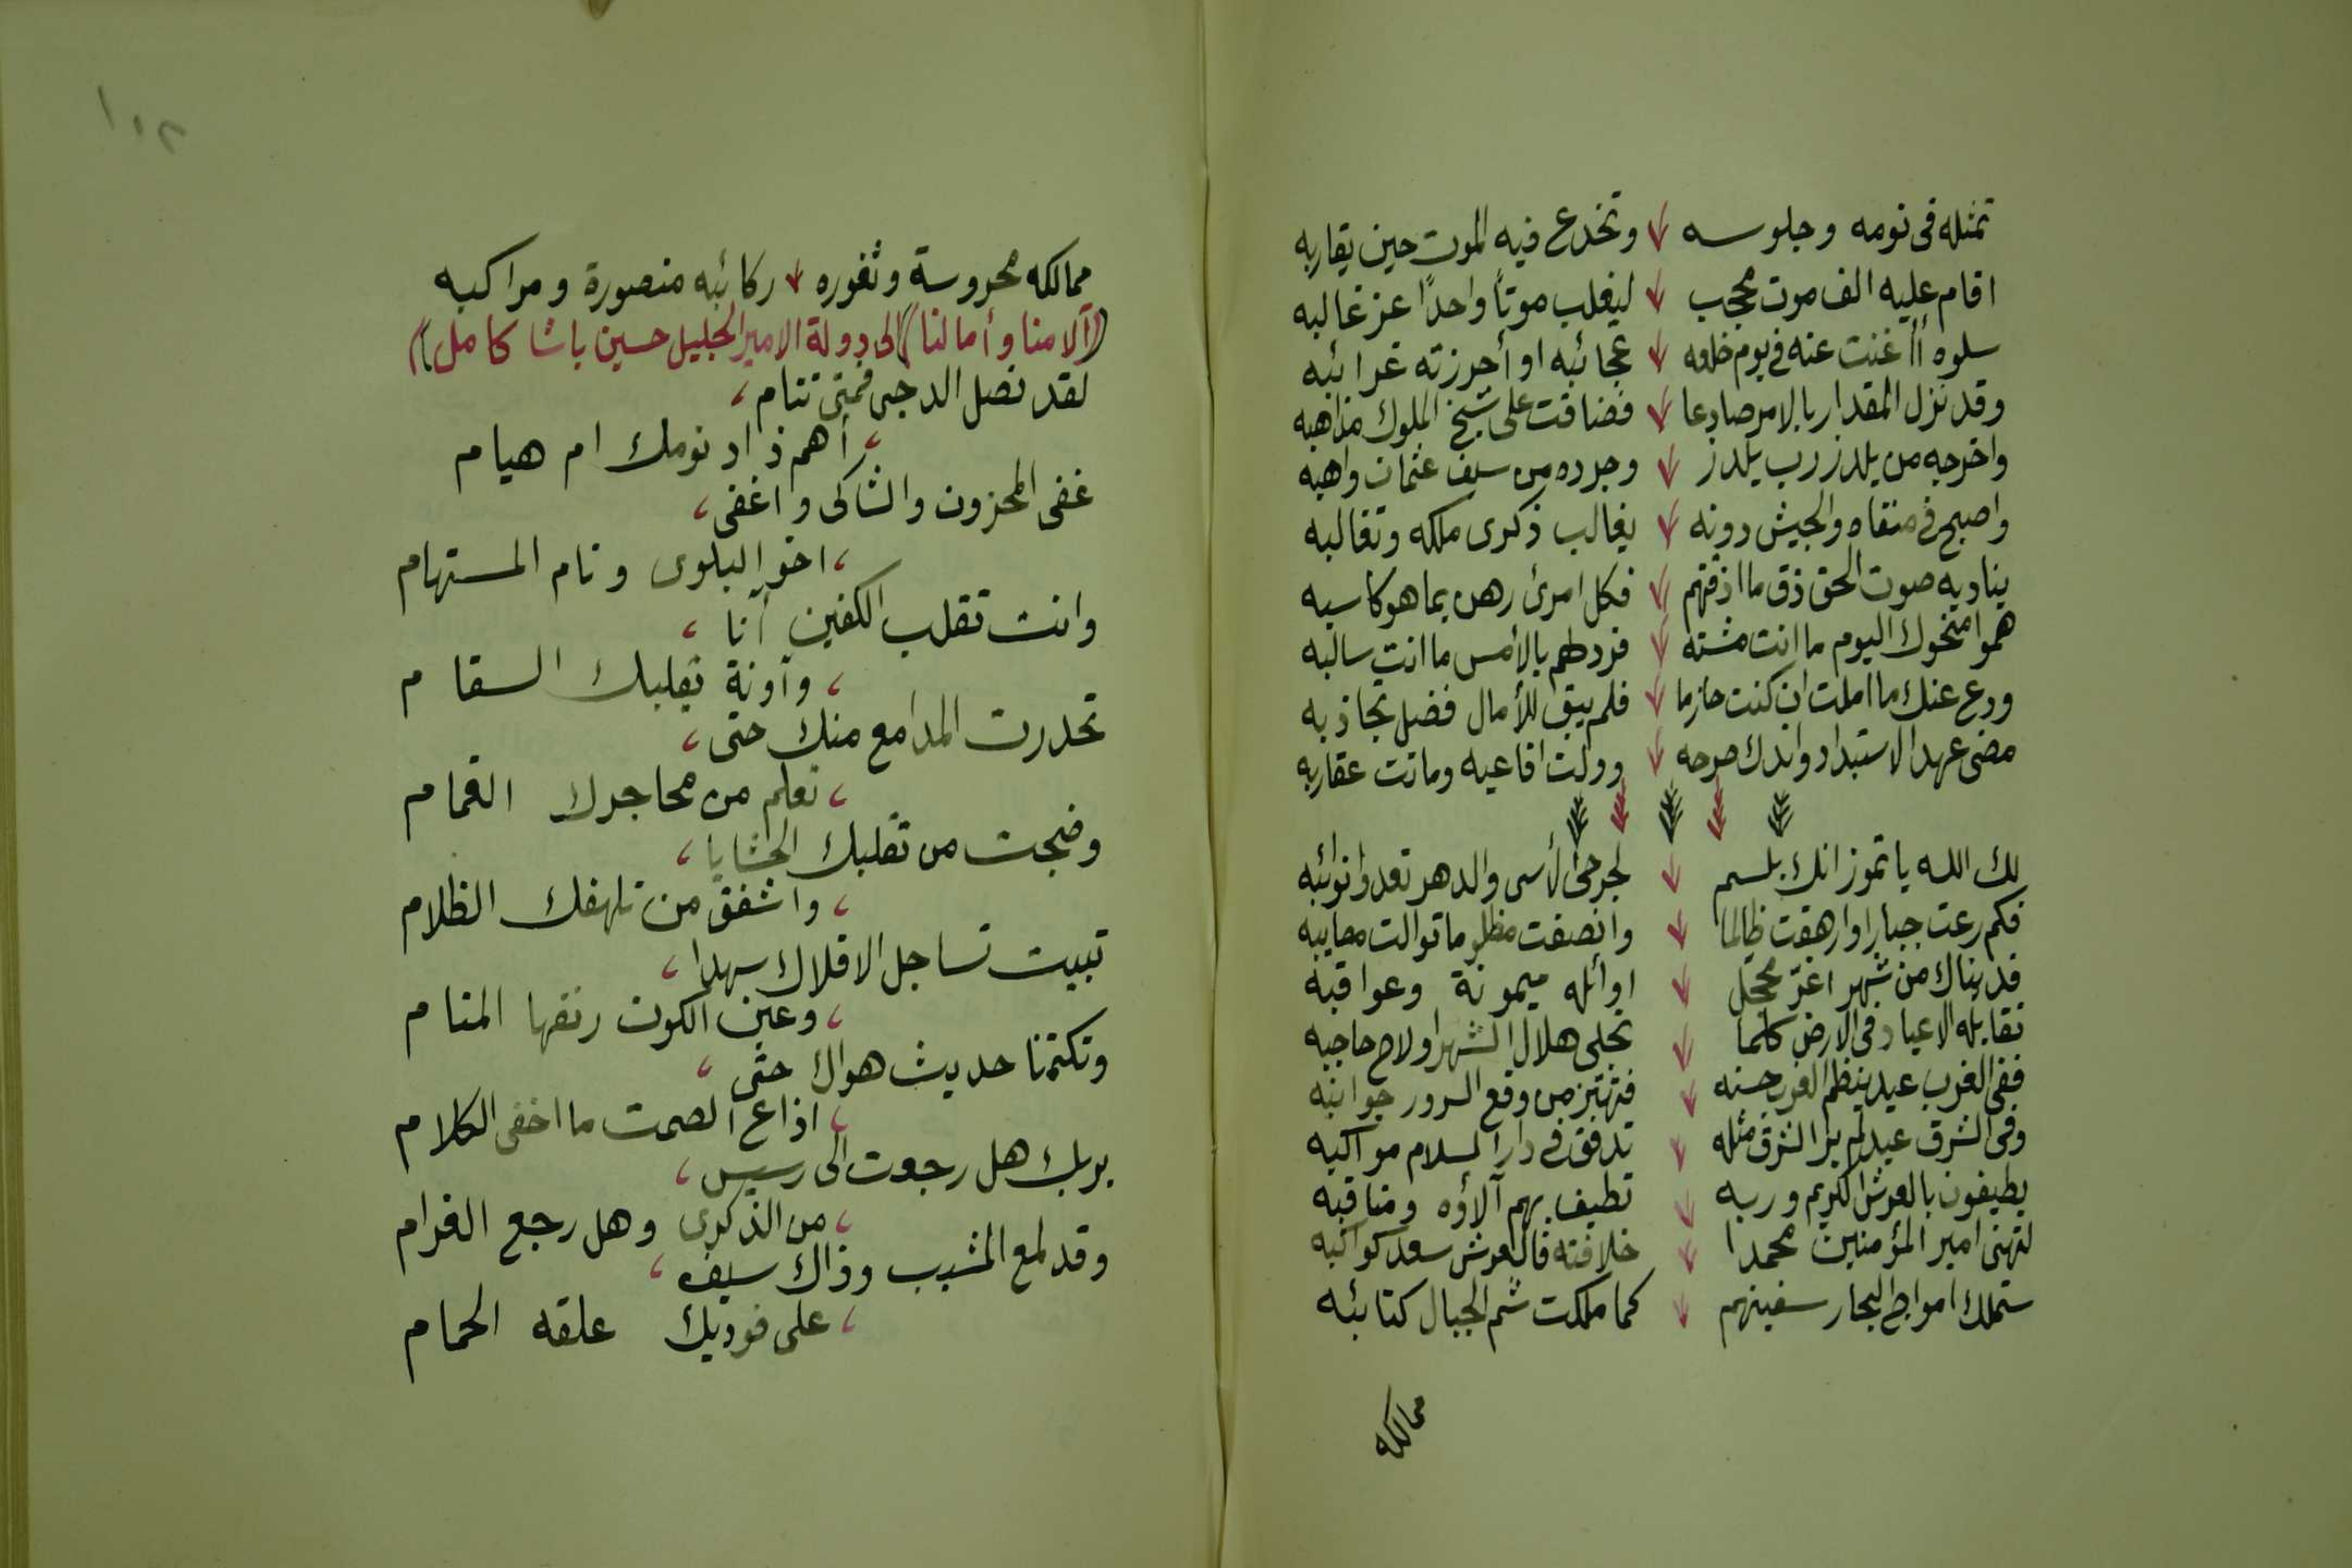 تمثله فى نومه وجلوسه وتخدع فيه الموت حين يقاربه
اقام عليه الف موت محجب ليغلب موتاً واحداً عز غالبه
سلوه أأغنت عنه فى يوم خلعه عجائبه او أحرزته غرائبه
وقد نزل المقدار بالامر صادعا فضاقت على شيخ الملوك مذاهبه
واخرجه من يلدز رب يلدز وجرده من سيف عثمان واهبه
واصبح فى منفاه والجيش دونه يغالب ذكرى ملكه وتغالبه
يناديه صوت الحق ذق ما اذقتهم فكل امرئ رهن بما هو كاسبه
هموا منحوك اليوم ما انت مشته فرد لهم بالأمس ما انت سالبه
ودع عنك ما املت ان كنت حازما فلم يبق للأمال فضل تجاذبه
مضى عهد الاستبداد واندك صرحه وولت افاعيه وماتت عقاربه
لك الله يا تموز انك بلسم لجرحى الأسى والدهر تعدوا نوائبه
فكم رعت جبارا وارهقت ظالما وانصفت مظلوما توالت مصايبه
فديناك من شهر اغرّ محجل اوائله ميمونة وعواقبه
تقابله الاعياد فى الارض كلما تجلى هلال الشهر او لاح حاجبه
ففى الغرب عيد ينظم الغرب حسنه فتهتز من وقع السرور جوانبه
وفى الشرق عيد لم ير الشرق مثله تدفق فى دار السلام مواكبه
يطيفون بالعرش الكريم وربه تطيف بهم آلاؤه ومناقبه
لتهنى امير المؤمنين محمدا خلافته فالعرش سعد كواكبه
ستملك امواج البحار سفينهم كما ملكت شم الجبال كتائبه
ممالكه
١٠٢
ممالكه محروسة وثغوره ركائبه منصورة ومراكبه
((آلامنا وأمالنا)) الى دولة الامير الجليل حسين باشا كامل))
لقد نصل الدجى فمتى تنام
أهم ذاد نومك ام هيام
غفى المحزون والشاكى واغفى
اخو البلوى ونام المستهام
وانت تقلب الكفين آنا
وآونة تقلبك السقام
تحدرت المدامع منك حتى
تعلم من محاجرك الغمام
وضجت من تقلبك الحشايا
واشفق من تلهفك الظلام
تبيت تساجل الافلاك سهدا
وعين الكون رنقها المنام
وتكتمنا حديث هواك حتى
اذاع الصمت ما اخفى الكلام
بربك هل رجعت الى رسيس
من الذكرى وهل رجع الغرام
وقد لمع المشيب وذاك سيف
على فوديك علقه الحمام